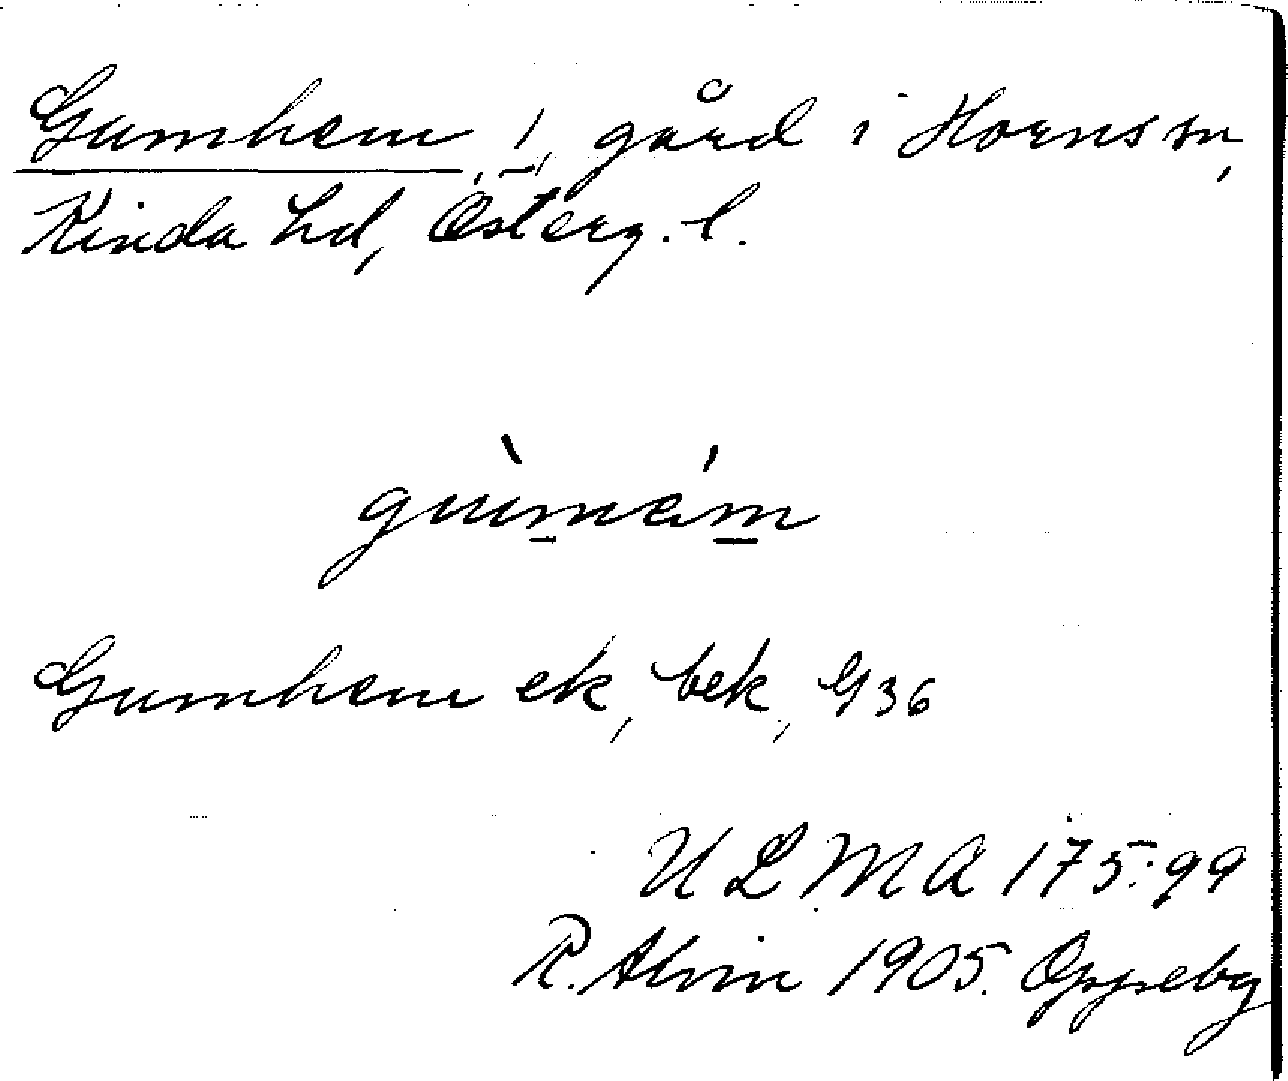 Gumhem, 1, gård i Horns sn,
Kinda hd, Österg. l.
gùmém
Gumhem ek, bek, G36
ULMA 175:99
R. Alvin 1905. Oppeby